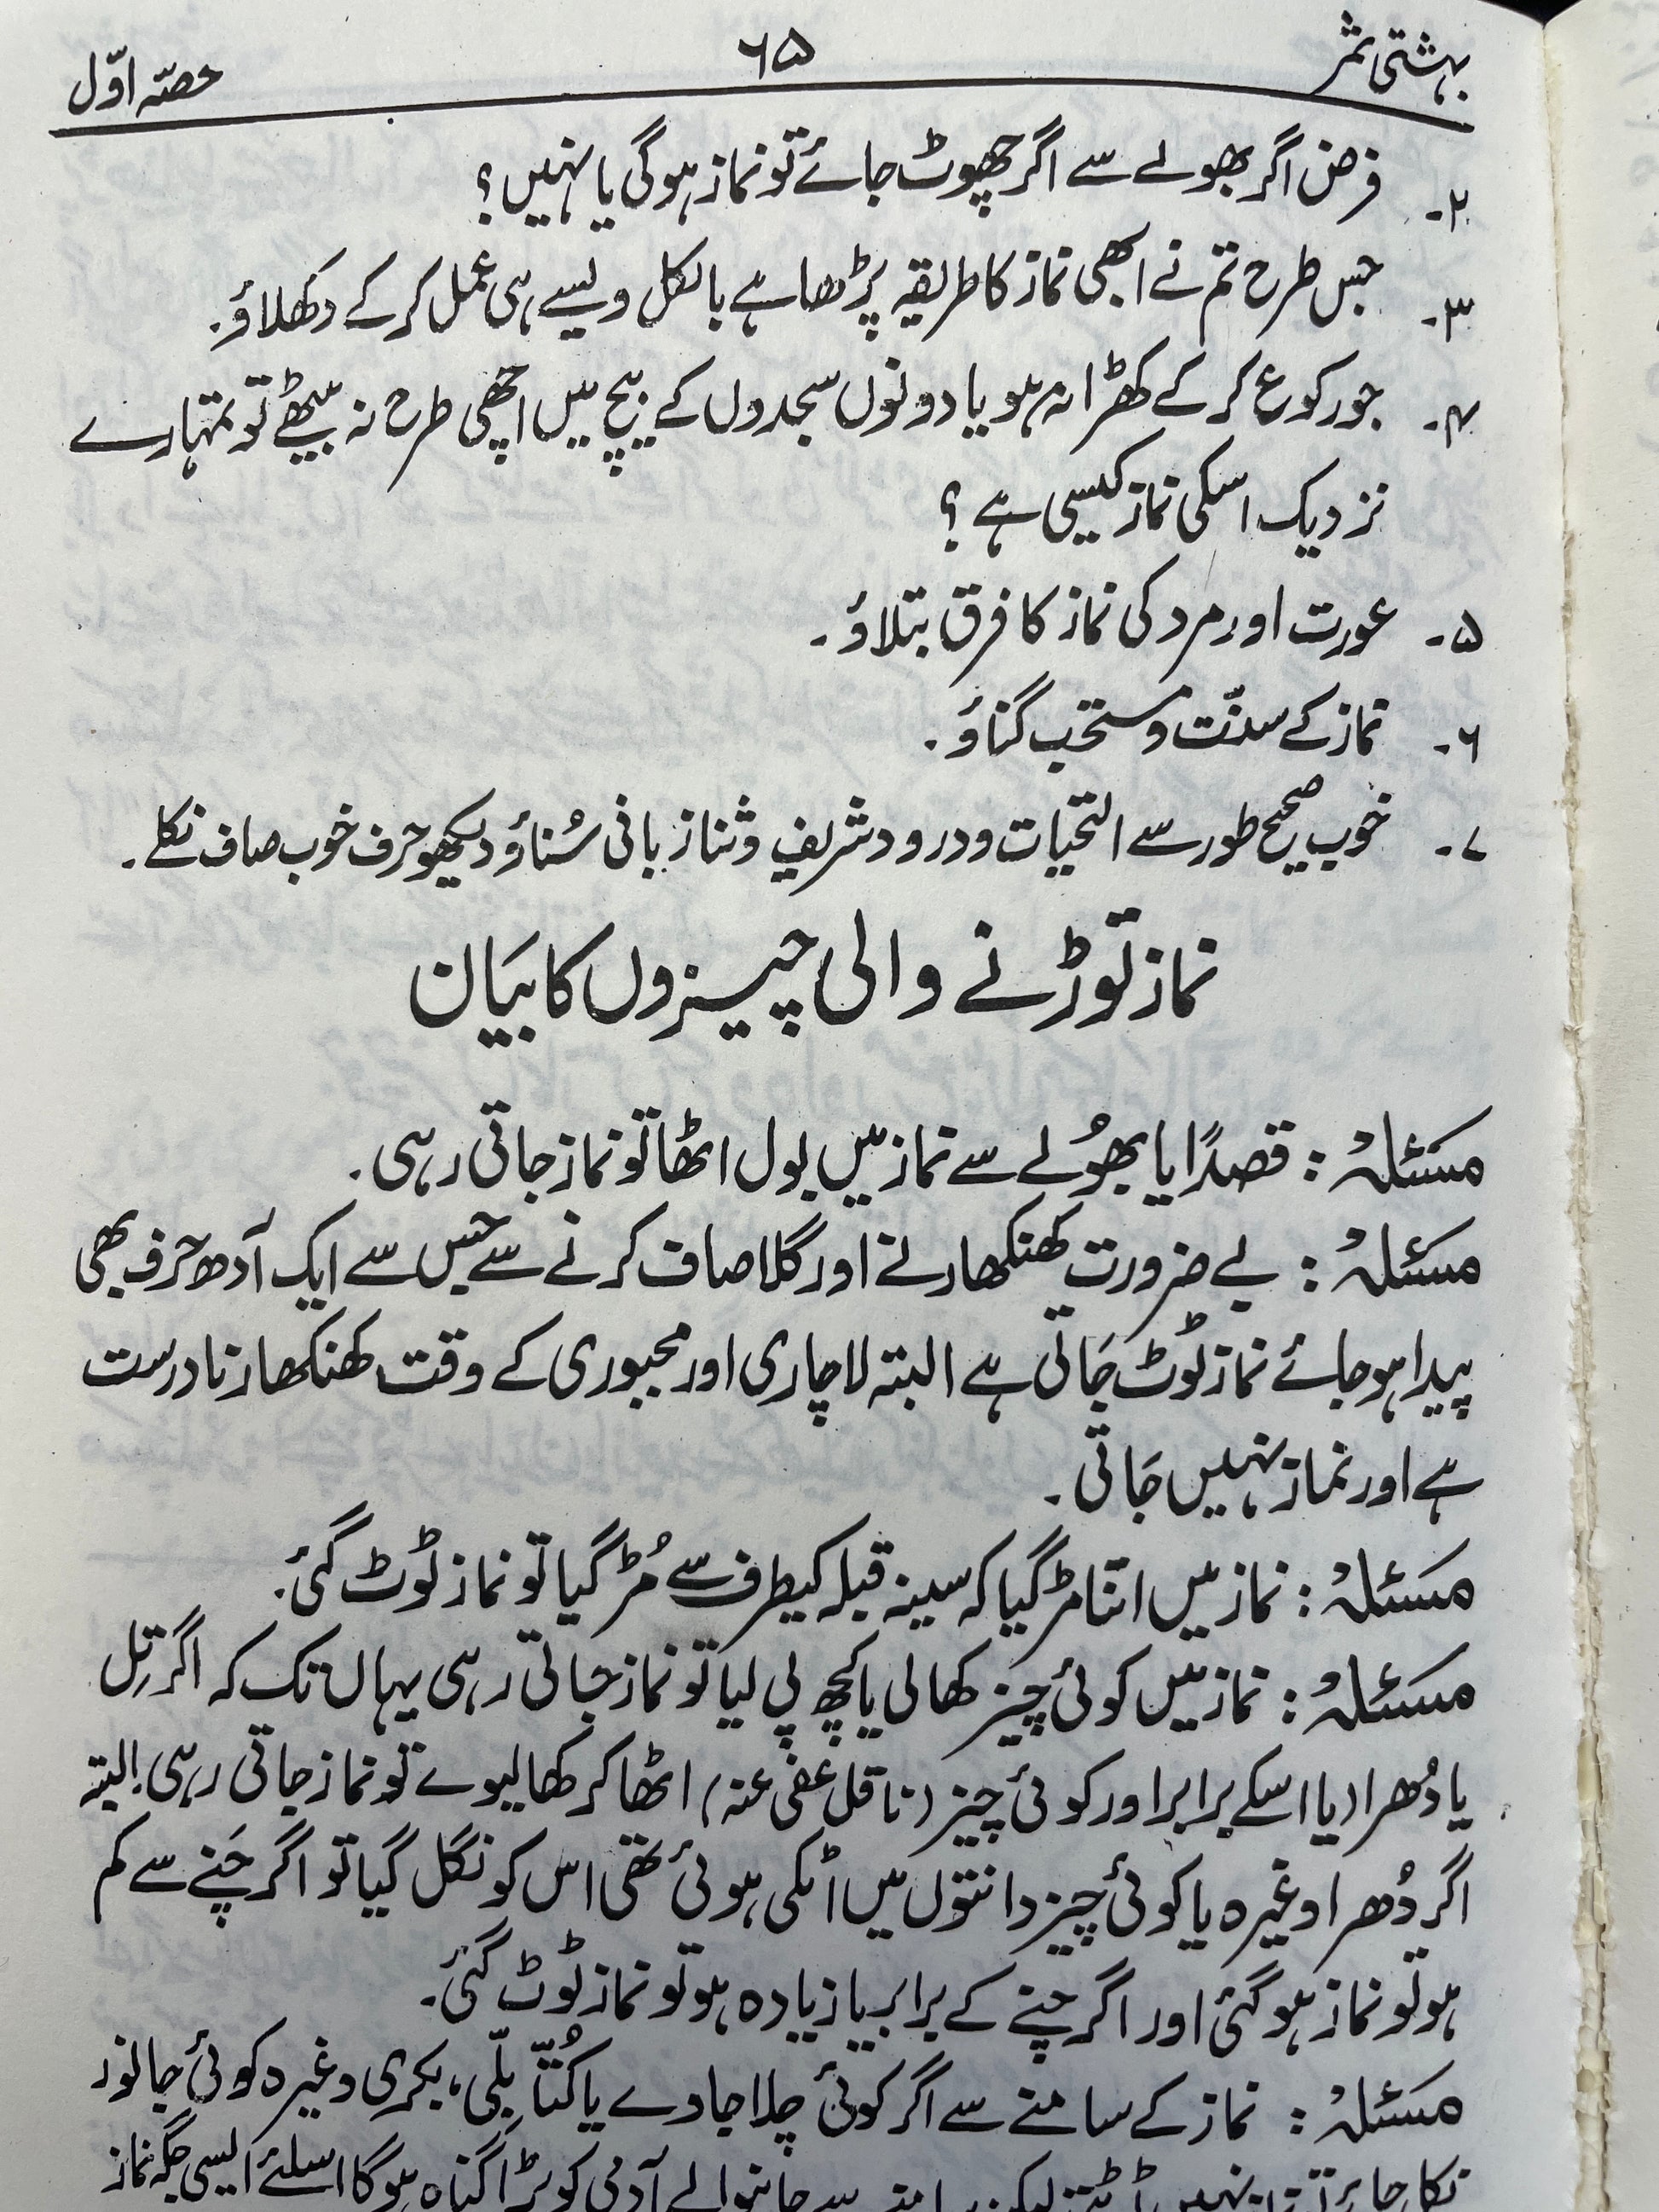 بہشتی ثمر ۶۵ حصّہ اوّل
۲۔ فرض اگر بھولے سے اگر چھوٹ جائے تو نماز ہوگی یا نہیں؟
۳۔ جس طرح تم نے ابھی نماز کا طریقہ پڑھا ہے بالکل ویسے ہی عمل کر کے دکھلاؤ۔
۴۔ جو رکوع کر کے کھڑا نہ ہو یا دونوں سجدوں کے بیچ میں اچھی طرح نہ بیٹھے تو تمہارے
نزدیک اسکی نماز کیسی ہے؟
۵۔ عورت اور مرد کی نماز کا فرق بتلاؤ۔
۶۔ نماز کے سنّت و مستحب گناؤ۔
۷۔ خوب صحیح طور سے التحیات و درود شریف و ثنا زبانی سُناؤ دیکھو حرف خوب صاف نکلے۔
نماز توڑنے والی چیزوں کا بیَان
مسَئلہُ : قصدًا یا بھُولے سے نماز میں بول اٹھا تو نماز جاتی رہی۔
مسَئلہُ : بے ضرورت کھنکھارنے اور گلا صاف کرنے سے جس سے ایک آدھ حرف بھی
پیدا ہو جائے نماز ٹوٹ جَاتی ہے البتہ لاچاری اور مجبوری کے وقت کھنکھارنا درست
ہے اور نماز نہیں جَاتی۔
مسَئلہُ : نماز میں اتنا مڑ گیا کہ سینہ قبلہ کیطرف سے مُڑ گیا تو نماز ٹوٹ گئی۔
مسَئلہُ : نماز میں کوئی چیز کھالی یا کچھ پی لیا تو نماز جاتی رہی یہاں تک کہ اگر تِل
یا دُھرا (یا اسکے برابر اور کوئی چیز (ناقل عفی عنہ) اٹھا کر کھا لیوے تو نماز جاتی رہی البتہ
اگر دُھرا وغیرہ یا کوئی چیز دانتوں میں اٹکی ہوئی تھی اس کو نگل گیا تو اگر چَنے سے کم
ہو تو نماز ہو گئی اور اگر چنے کے برابر یا زیادہ ہو تو نماز ٹوٹ گئی۔
مسَئلہُ : نماز کے سامنے سے اگر کوئی چلا جاوے یا کُتّا بلّی، بکری وغیرہ کوئی جانور
نکل جائے تو نماز نہیں ٹوٹتی لیکن سامنے سے جانیوالے آدمی کو بڑا گناہ ہوگا اسلئے ایسی جگہ نماز